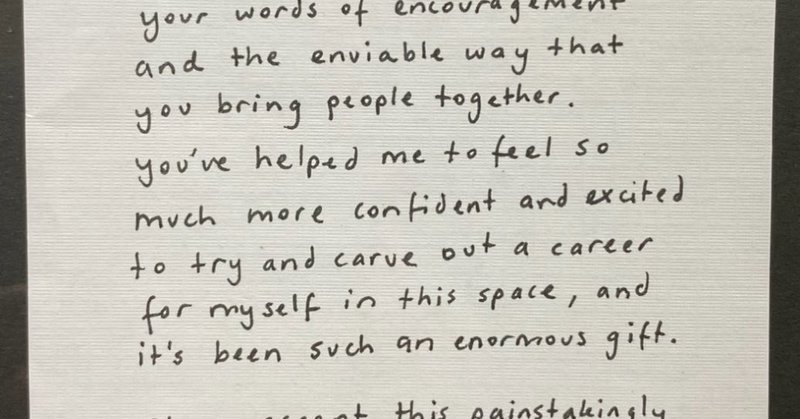 your words of encouragement
and the enviable way that
you bring people together.
you've helped me to feel so
much more confident and excited
to try and carve out a career
for myself in this space, and
it's been such an enormous gift.
this painstakingly